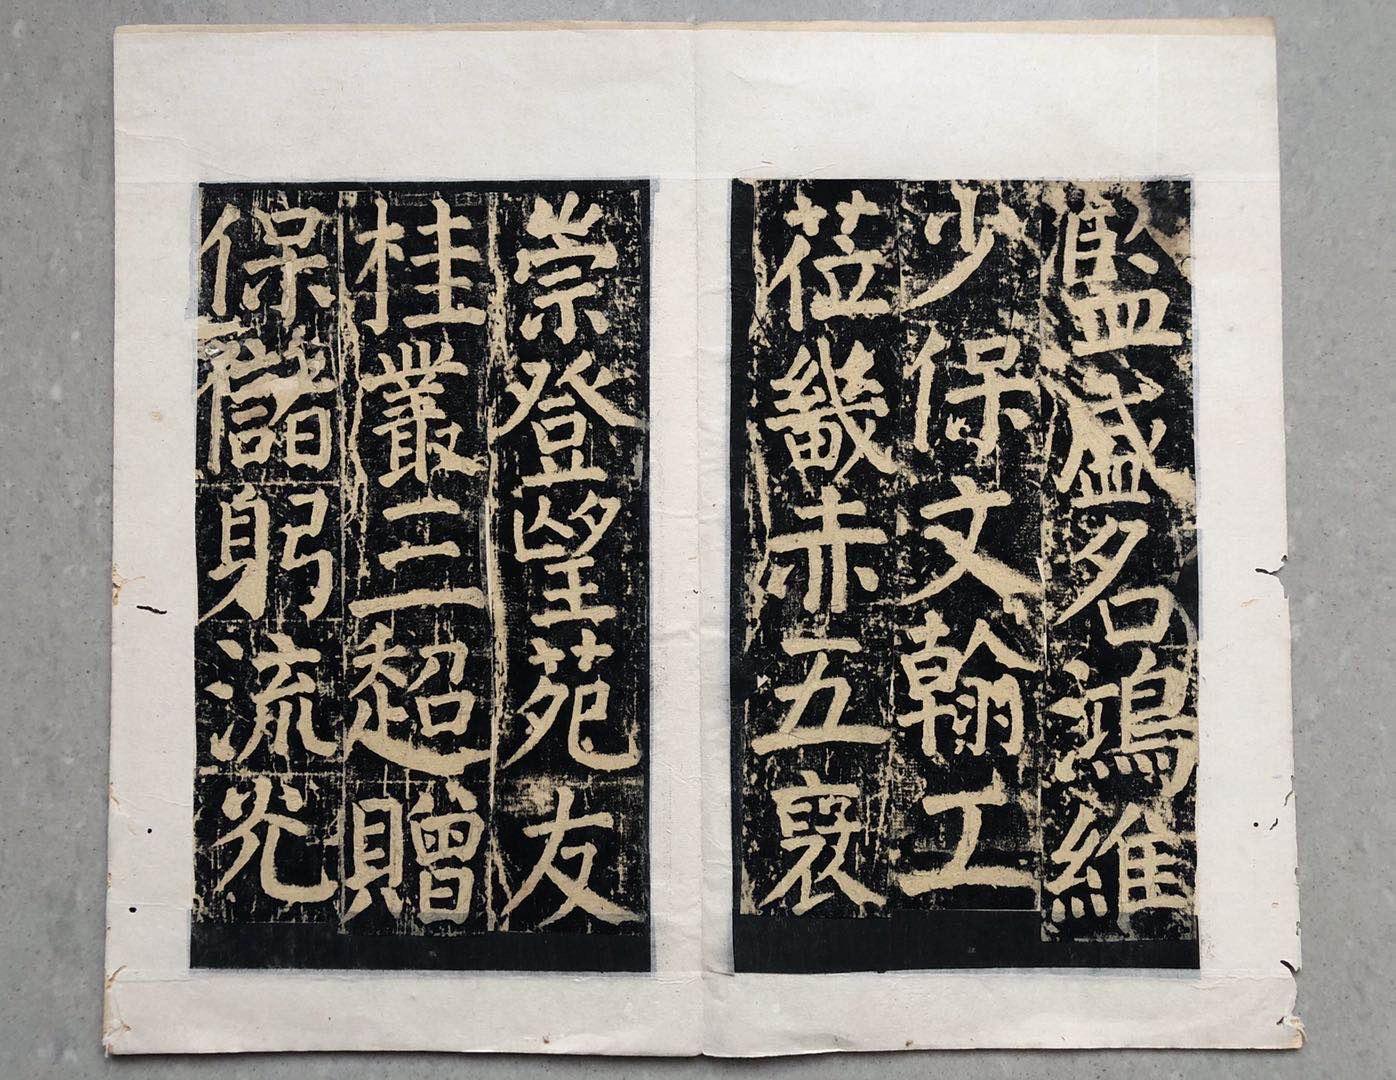 監盛名鴻維
少保文翰工
莅畿赤五褒
崇登望苑友
桂叢三超贈
保儲躬流光